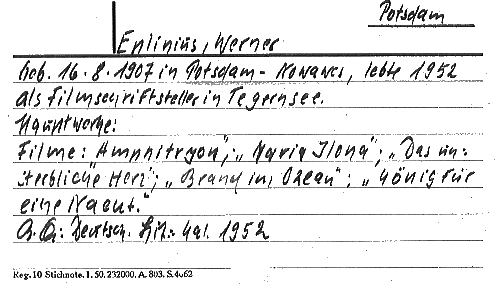 Potsdam
Eplinius, Werner
Geb. 16.8.1907 in Potsdam-Nowawes, lebte 1952
als Filmschriftsteller in Tegernsee.
Hauptwerke:
Filme: "Amphitryon"; "Maria Ilona"; "Das un-
sterbliche Herz"; "Brand im Ozean"; "König für
eine Nacht."
Deutsch. Lit.-Kal. 1952
Reg. 10 Stichnote. I. 50. 232000. A. 803. S. 4062